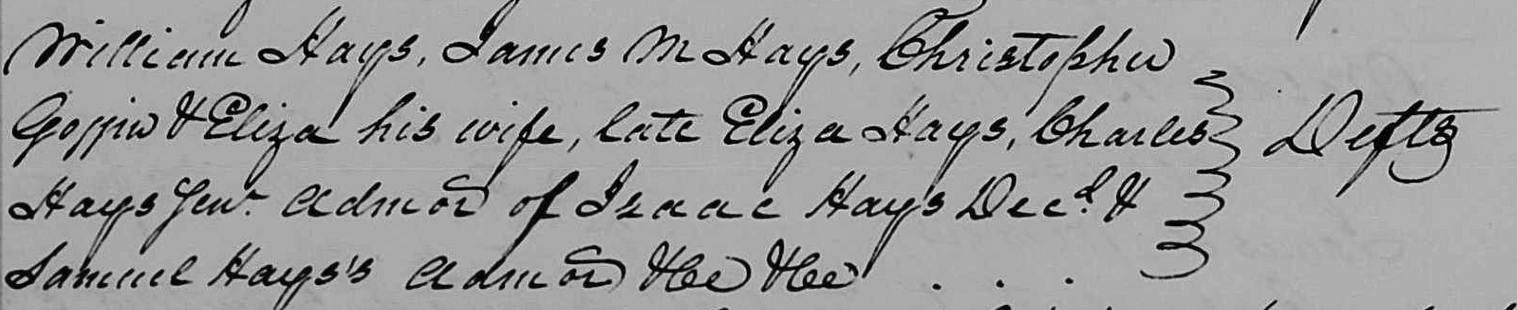 William Hays, James M Hays, Christopher
& Eliza his wife, late Eliza Hays, Charles Defts
Hays Admor of Isaac Hays Decd. &
Samuel Hays's Admor &c &c . . .